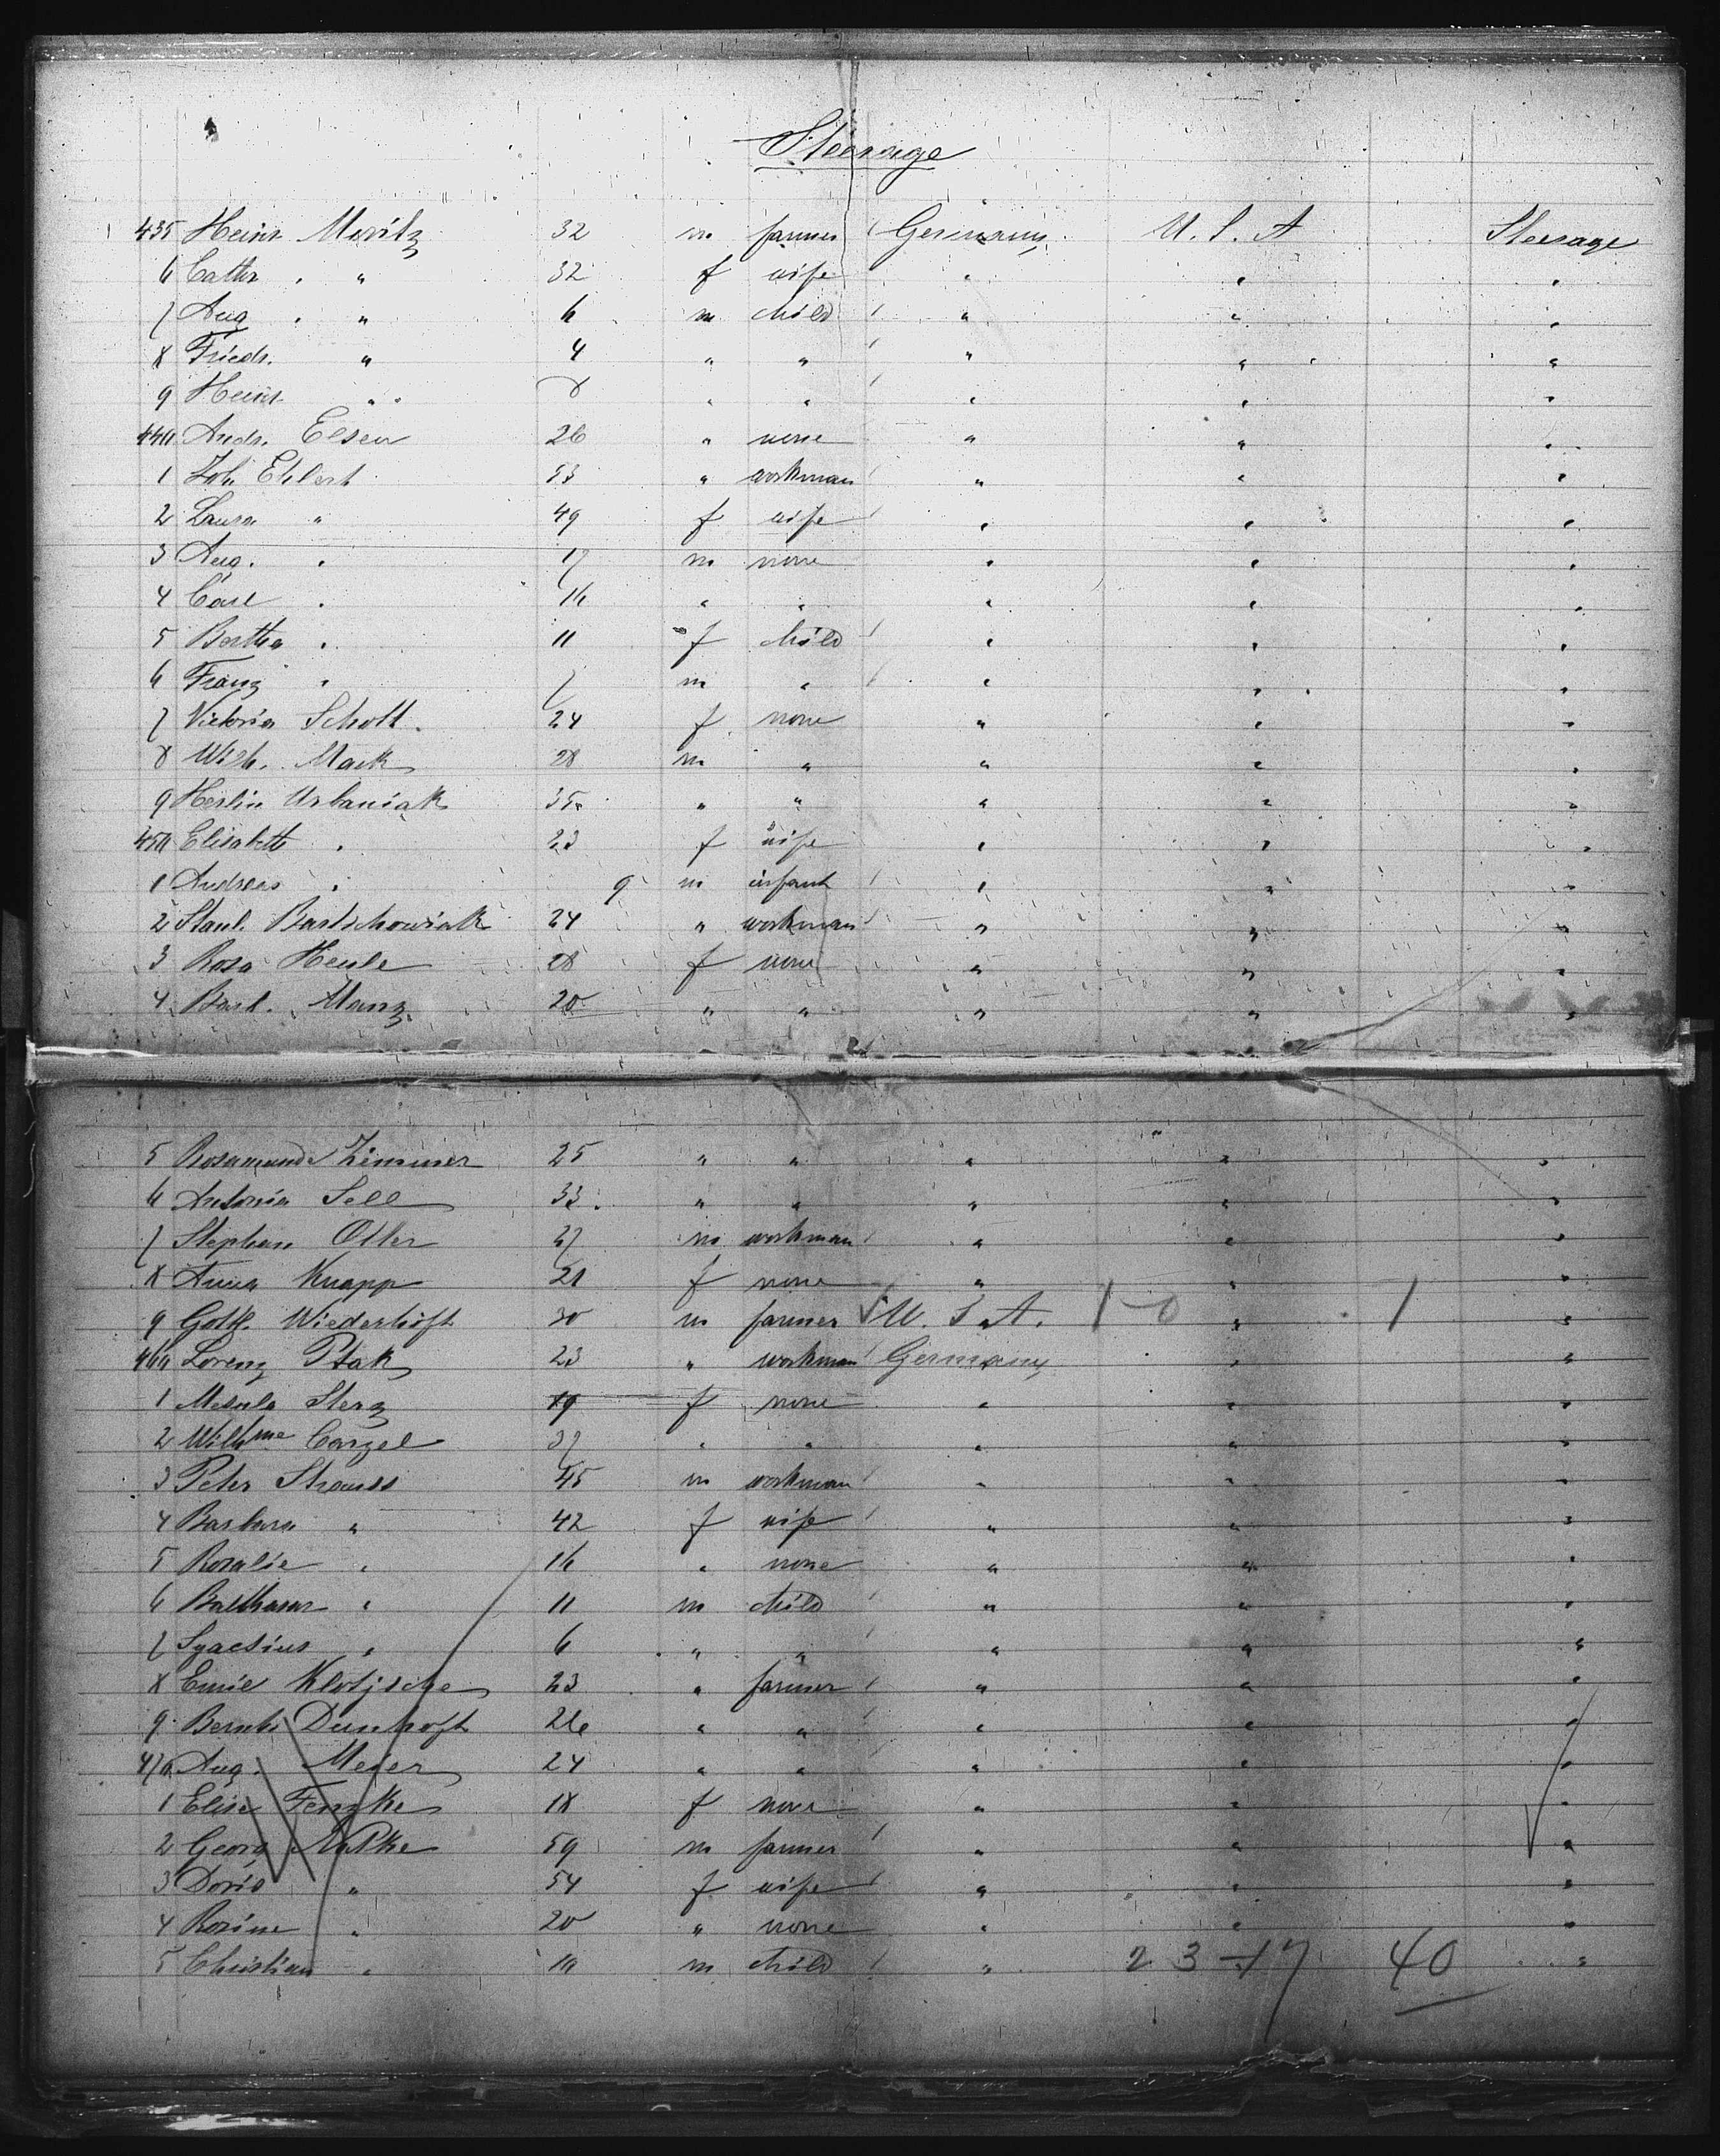 Steerage
435 Heinr. Moritz 32 m farmer Germany U. S. A Steerage
6 Cathr. " 32 f wife " " "
7 Aug. " 6 m child " " "
8 Friedr. " 4 " " " " "
9 Heinr. " 8 " " " " "
440 Andr. Elsen 26 " none " " "
1 Joh. Ehlert 53 " workman " " "
2 Laura " 49 f wife " " "
3 Aug. " 17 m none " " "
4 Carl " 16 " " " " "
5 Bertha " 11 f child " " "
6 Franz " 7 m " " " "
7 Victoria Schott 24 f none " " "
8 Wilh. Mack 28 m " " " "
9 Urbaniak 35 " " " " "
450 Elisabeth " 23 f wife " " "
1 Andreas " 9 m infant " " "
2 Stanl. Bartschowiak 24 " workman " " "
3 Rosa Henle 28 f none " " "
4 Barb. Manz 20 " " " " "
5 Rosamunde Zimmer 25 " " " " "
6 Antonia Sell 33 " " " " "
7 Stephan Otter 27 m workman " " "
8 Anna Knapp 21 f none " " "
9 Gottl. Wiederhöft 30 m farmer U. S. A. 1-0 " 1 "
460 Lorenz Ptak 23 " workman Germany " "
1 Sterz 19 f none " " "
2 Wilhme Canzel 37 " " " " "
3 Peter Strauss 45 m workman " " "
4 Barbara " 42 f wife " " "
5 Rosalie " 16 " none " " "
6 Balthasar " 11 m child " " "
7 " 6 " " " " "
8 Emil Klotzsche 23 " farmer " " "
9 Bernh. Dunhoft 26 " " " " "
470 Aug. Meier 24 " " " " "
1 Elise Fenzke 18 f none " " "
2 Georg 59 m farmer " " "
3 Doris " 54 f wife " " "
4 Rosine " 20 " none " " "
5 Christian " 10 m child " 23-17 40 "